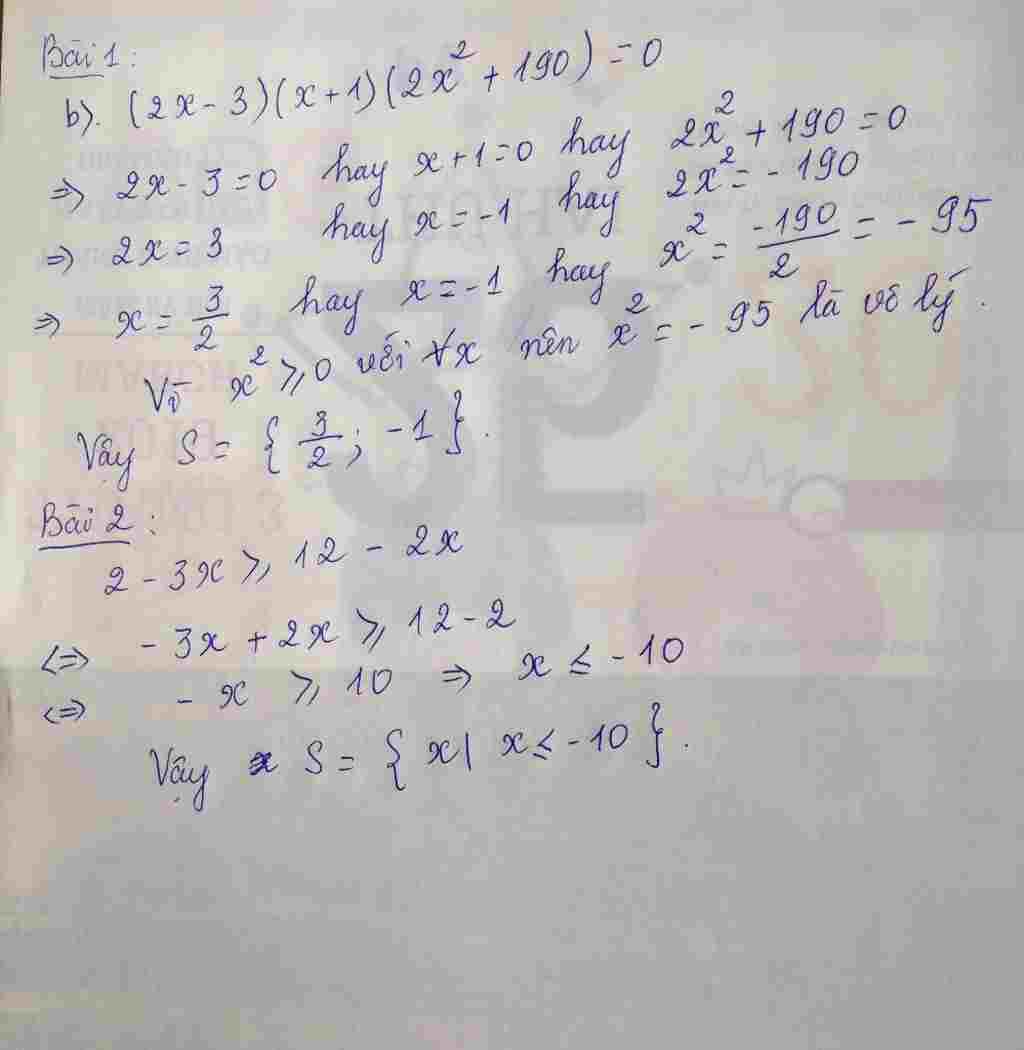 Bài 1:
b). (2x - 3)(x + 1)(2x² + 190) = 0
⇒ 2x - 3 = 0 hay x + 1 = 0 hay 2x² + 190 = 0
⇒ 2x = 3 hay x = -1 hay 2x² = - 190
⇒ x = 3/2 hay x = -1 hay x² = -190/2 = - 95
Vì x² ≥ 0 với ∀x nên x² = - 95 là vô lý.
Vậy S = { 3/2 ; -1 }.
Bài 2:
2 - 3x ≥ 12 - 2x
<=> - 3x + 2x ≥ 12 - 2
<=> - x ≥ 10 ⇒ x ≤ - 10
Vậy S = { x | x ≤ -10 }.